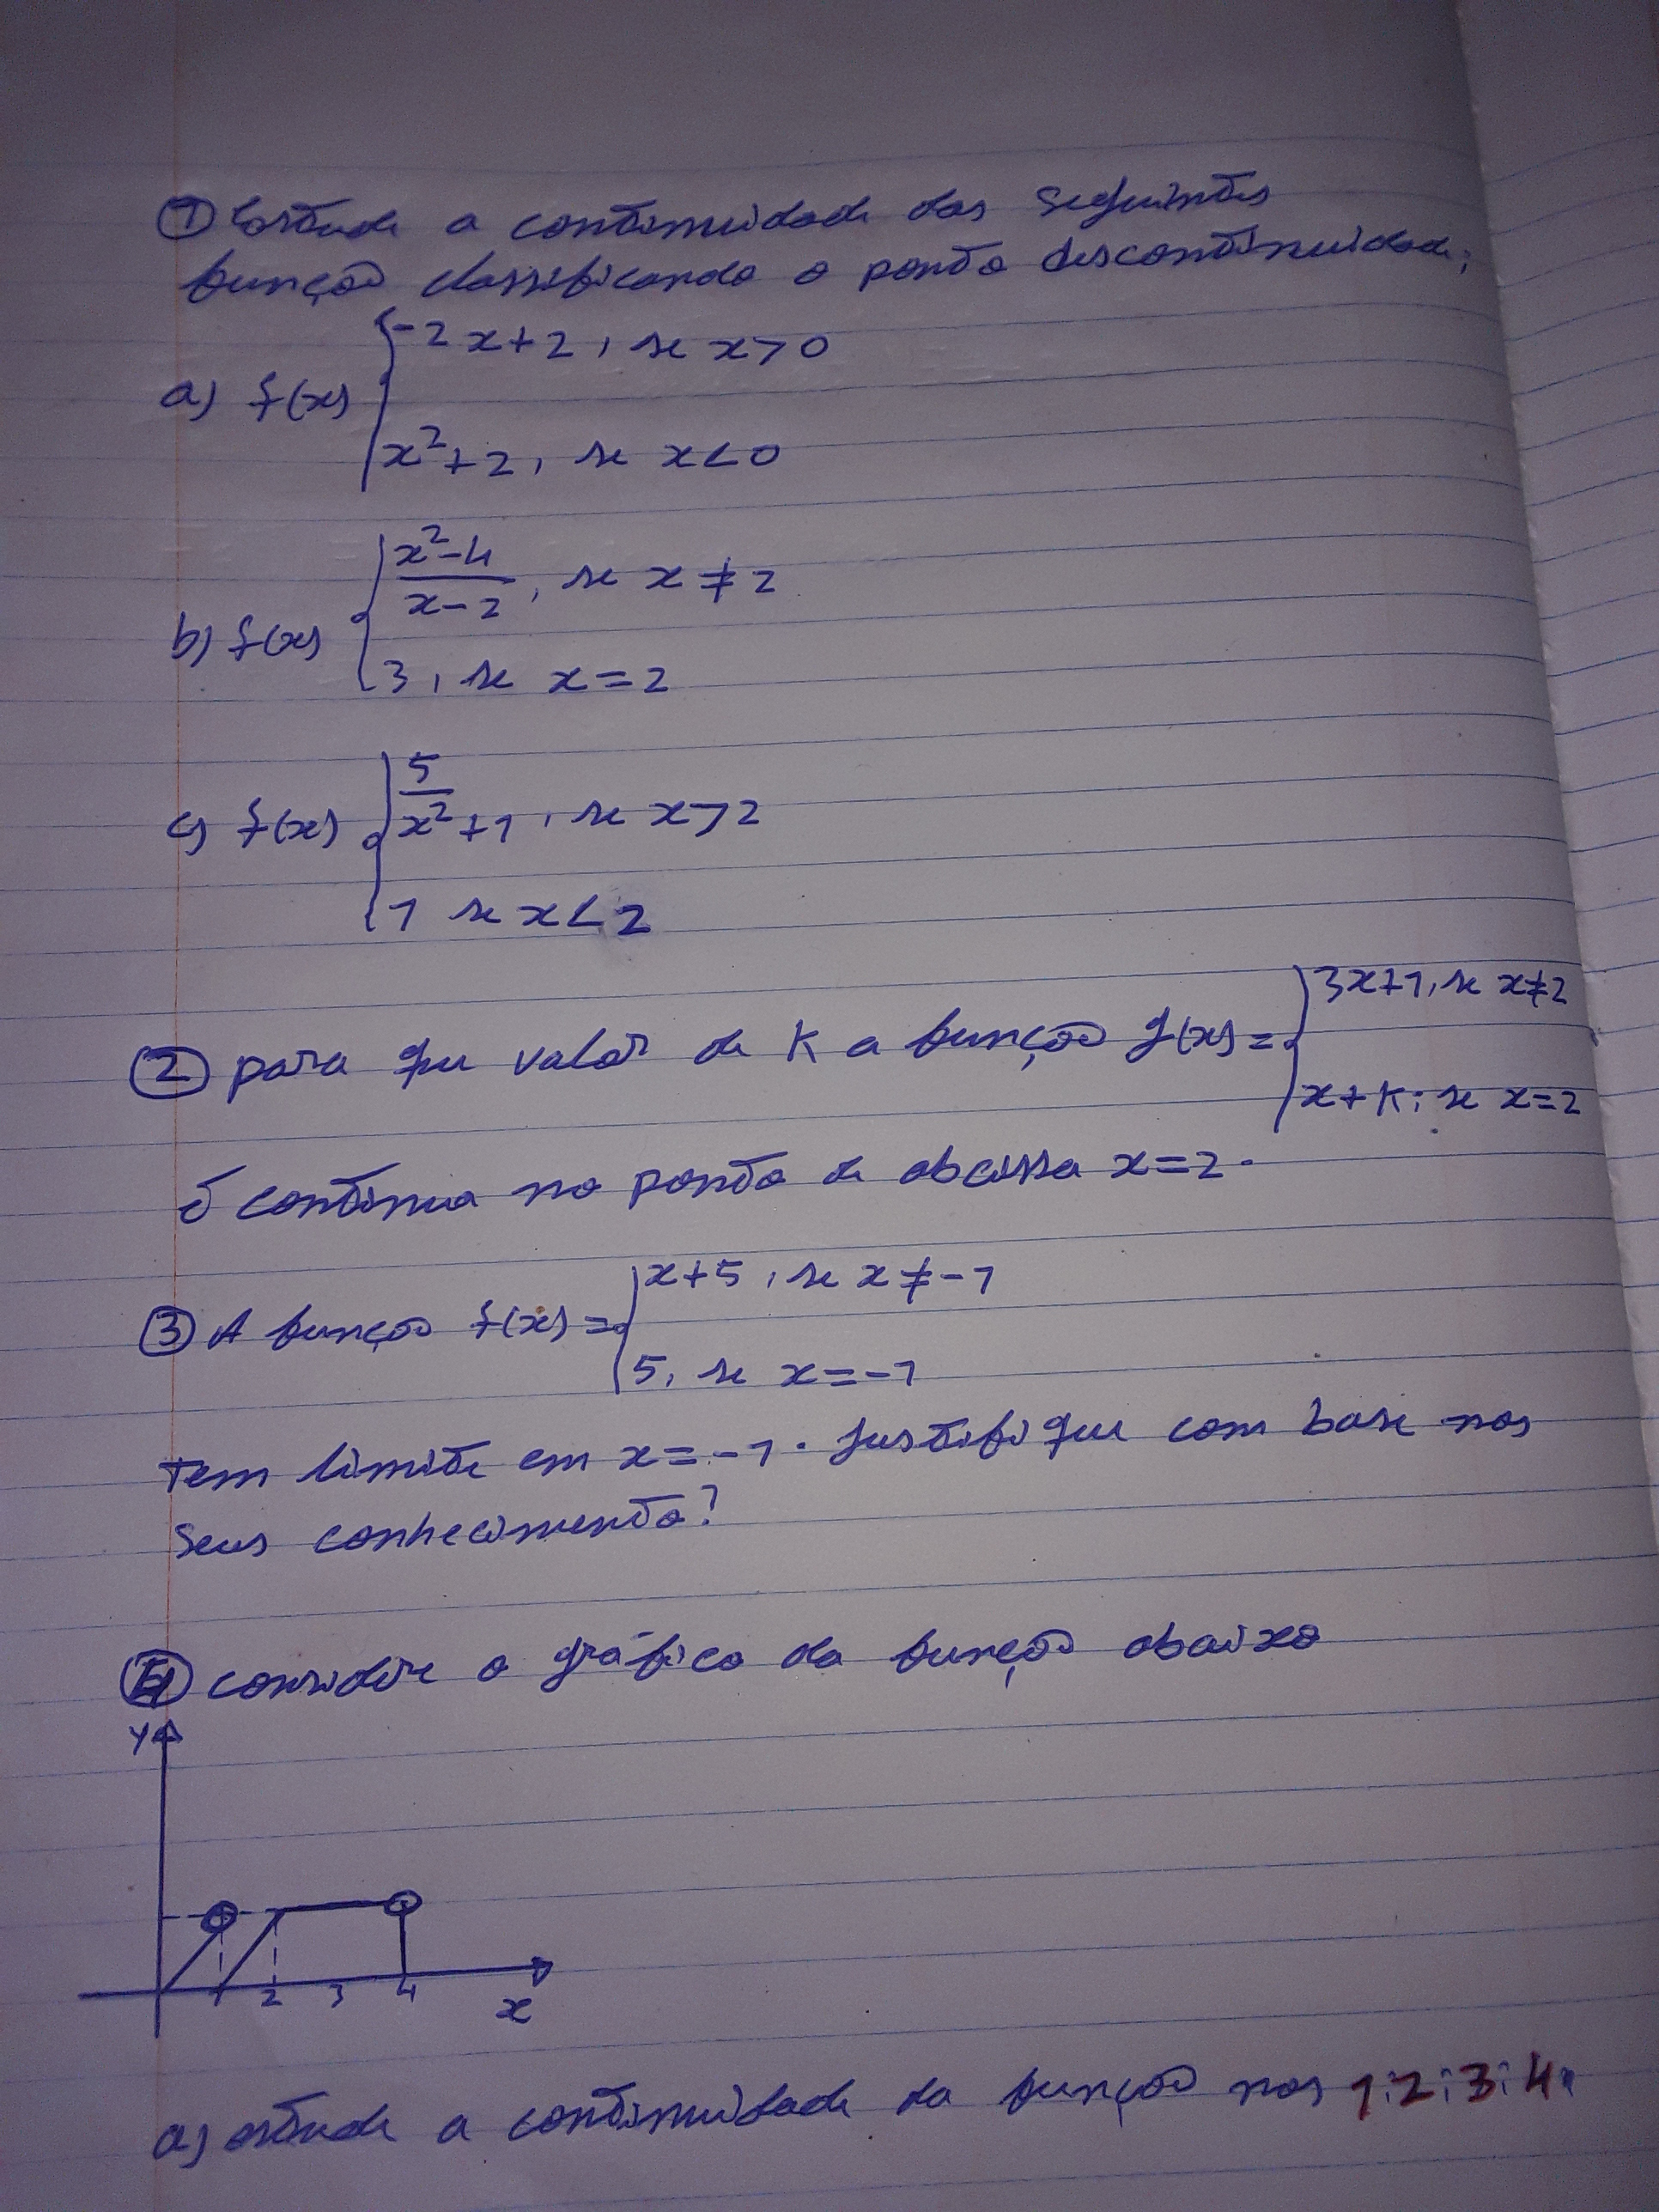 ① Estude a continuidade das seguintes
função classificando o ponto descontinuidade;
a) f(x) { -2x+2, se x>0
x²+2, se x<0
b) f(x) { x²-4 / x-2, se x≠2
3, se x=2
c) f(x) { 5/x²+1, se x>2
1 se x<2
② para que valor de K a função g(x)= { 3x+1, se x≠2
x+K; se x=2
é continua no ponto de abcissa x=2.
③ A função f(x)= { x+5, se x≠-1
5, se x=-1
Tem limite em x=-1. Justifique com base nos
seus conhecimento?
④ considere o gráfico da função abaixo
y
1 2 3 4
x
a) estude a continuidade da função nos 1;2;3;4.